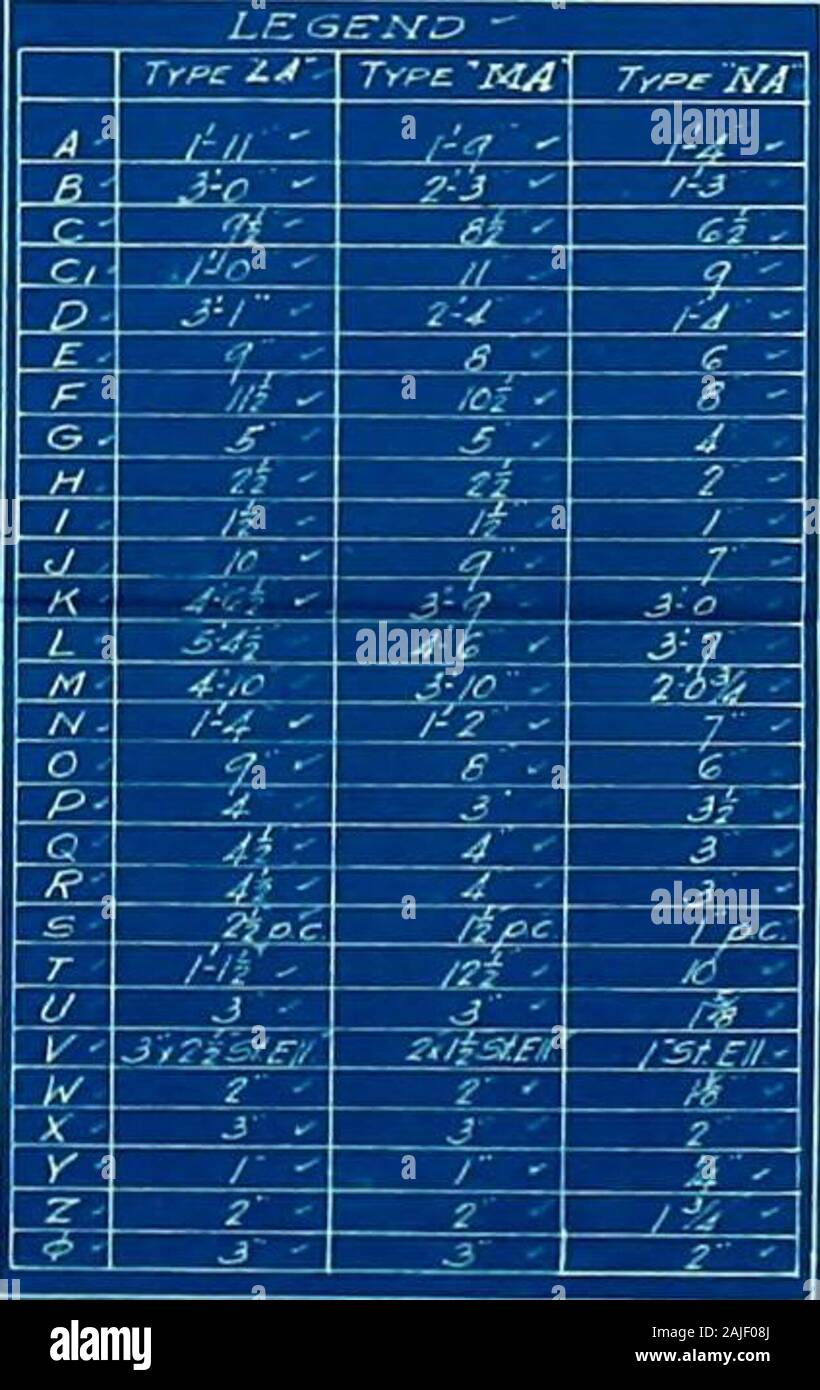 LEGEND
TYPE "LA" TYPE "MA" TYPE "NA"
A 1'-11" 1'-9" 1'-4"
B 3'-0" 2'-3" 1'-3"
C 9½" 8½" 6½"
C1 1'-0" 11" 9"
D 3'-1" 2'-4" 1'-4"
E 9" 8" 6"
F 11½" 10½" 8"
G 5" 5" 4"
H 2½" 2½" 2"
I 1½" 1½" 1"
J 10" 9" 7"
K 3'-9" 3'-0"
L 5'-4½" 4'-6" 3'-9"
M 4'-10" 3'-10" 2'-0¾"
N 1'-4" 1'-2" 7"
O 9" 8" 6"
P 4" 3" 3½"
Q 4½" 4" 3"
R 4½" 4" 3"
S 2½" O.C. 1½" O.C. 1" O.C.
T 1'-1½" 12½" 10"
U 3" 3"
V 3"x2½" St. Ell 2x1½" St. Ell 1" St. Ell
W 2" 2"
X 3" 3" 2"
Y 1" 1"
Z 2" 2" 1¾"
Φ 3" 3" 2"
alamy
a alamy
Image ID: 2AJF08J
www.alamy.com